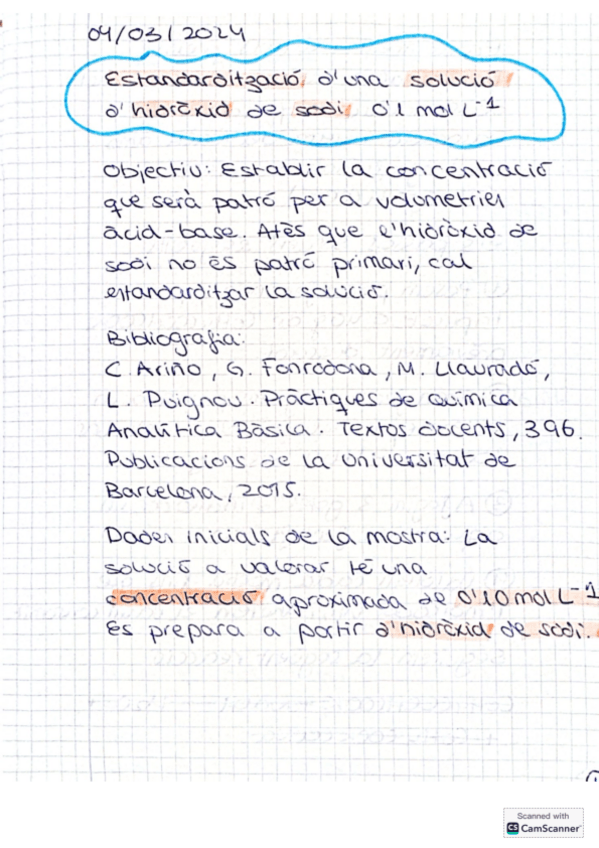 04/03/2024
Estandardització d'una solució
d'hidròxid de sodi 0'1 mol L⁻¹
Objectiu: Establir la concentració
que serà patró per a volumetries
àcid-base. Atès que l'hidròxid de
sodi no és patró primari, cal
estandarditzar la solució.
Bibliografia:
C. Ariño, G. Fonrodona, M. Llauradó,
L. Puignou. Pràctiques de Química
Analítica Bàsica. Textos docents, 396.
Publicacions de la Universitat de
Barcelona, 2015.
Dades inicials de la mostra: La
solució a valorar té una
concentració aproximada de 0'10 mol L⁻¹
Es prepara a partir d'hidròxid de sodi.
Scanned with
CS CamScanner